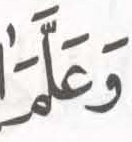 وَعَلَّمَ